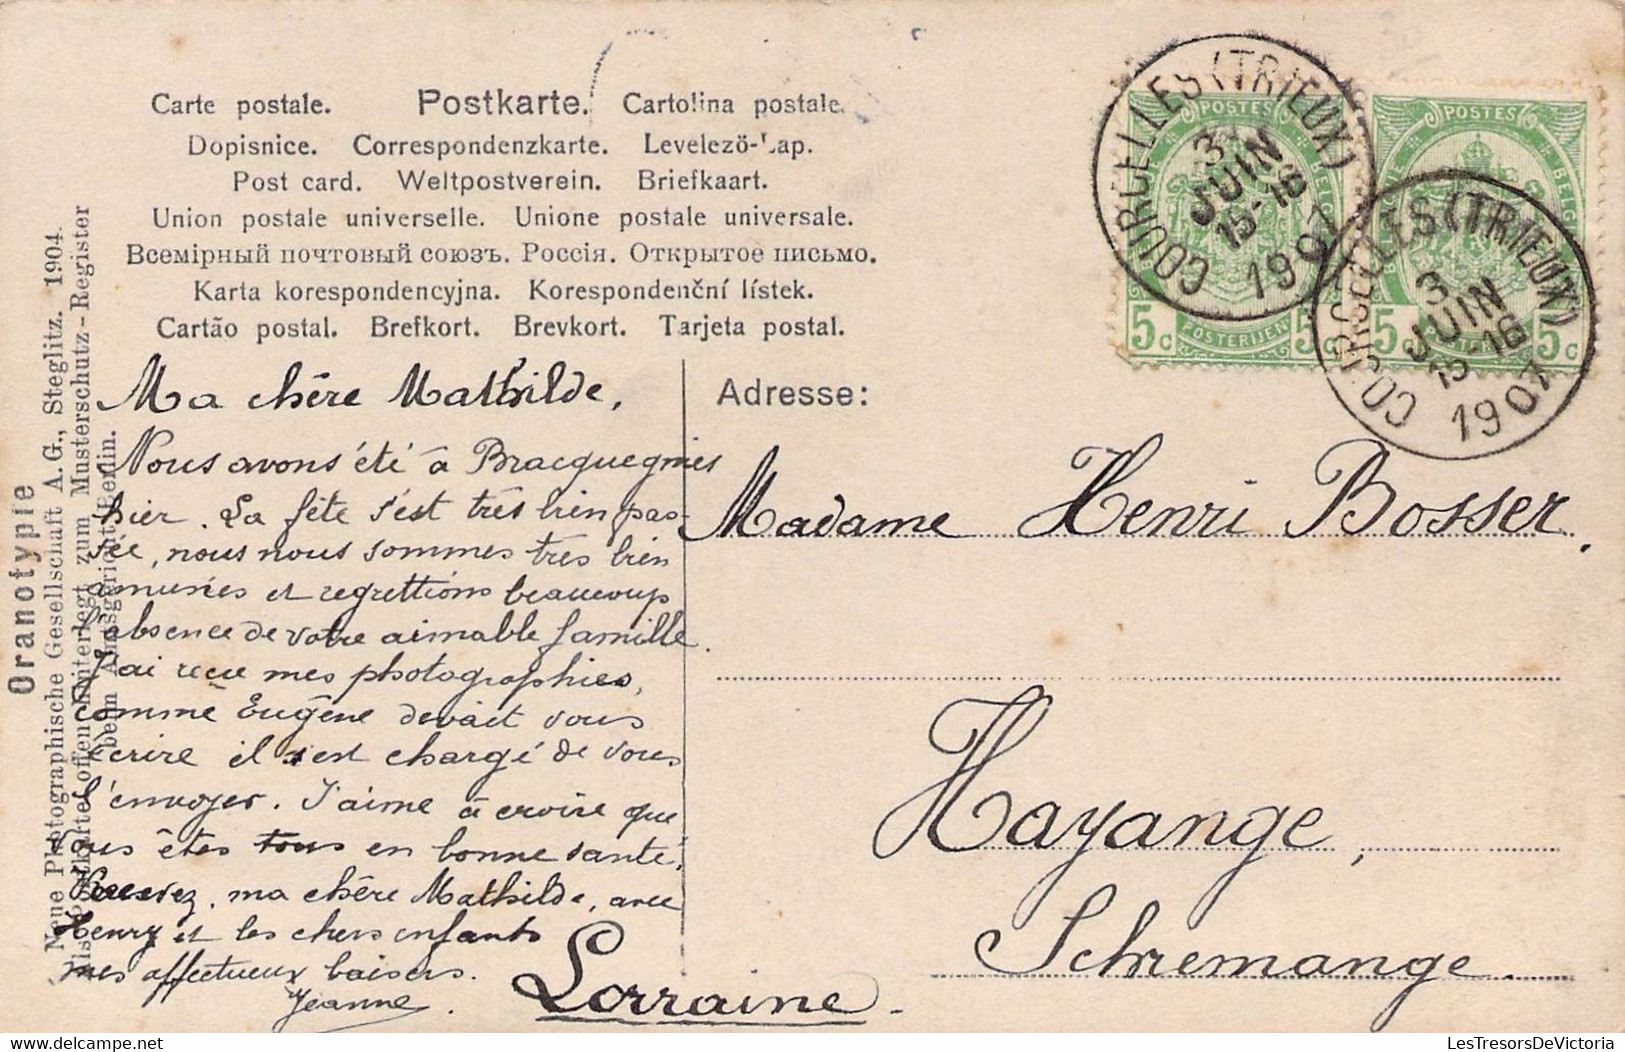 Carte postale. Postkarte. Cartolina postale.
Dopisnice. Correspondenzkarte. Levelezö-Lap.
Post card. Weltpostverein. Briefkaart.
Union postale universelle. Unione postale universale.
Всемірный почтовый союзъ. Россія. Открытое письмо.
Karta korespondencyjna. Korespondenční lístek.
Cartão postal. Brefkort. Brevkort. Tarjeta postal.
Oranotypie
Neue Photographische Gesellschaft A.G., Steglitz. 1904.
offen hinterlegt zum Musterschutz-Register
beim Amtsgericht Berlin.
Ma chère Mathilde,
Nous avons été à Bracquegnies
hier. La fête s'est très bien pas-
sée, nous nous sommes très bien
amusés et regrettions beaucoup
l'absence de votre aimable famille.
J'ai reçu mes photographies,
comme Eugène devait vous
écrire il s'est chargé de vous
l'envoyer. J'aime à croire que
vous êtes tous en bonne santé,
Recevez, ma chère Mathilde, avec
Henry et les chers enfants
mes affectueux baisers.
Jeanne.
Adresse:
Madame Henri Bosser.
Hayange,
Schremange.
Lorraine.
COURCELLES (TRIEUX)
3
JUIN
15-16
1907
COURCELLES (TRIEUX)
3
JUIN
15-16
1907
POSTES
BELGIQUE
BELGIE
5c POSTERIJEN 5c
POSTES
BELGIE
5c 5c
delcampe.net
LesTresorsDeVictoria